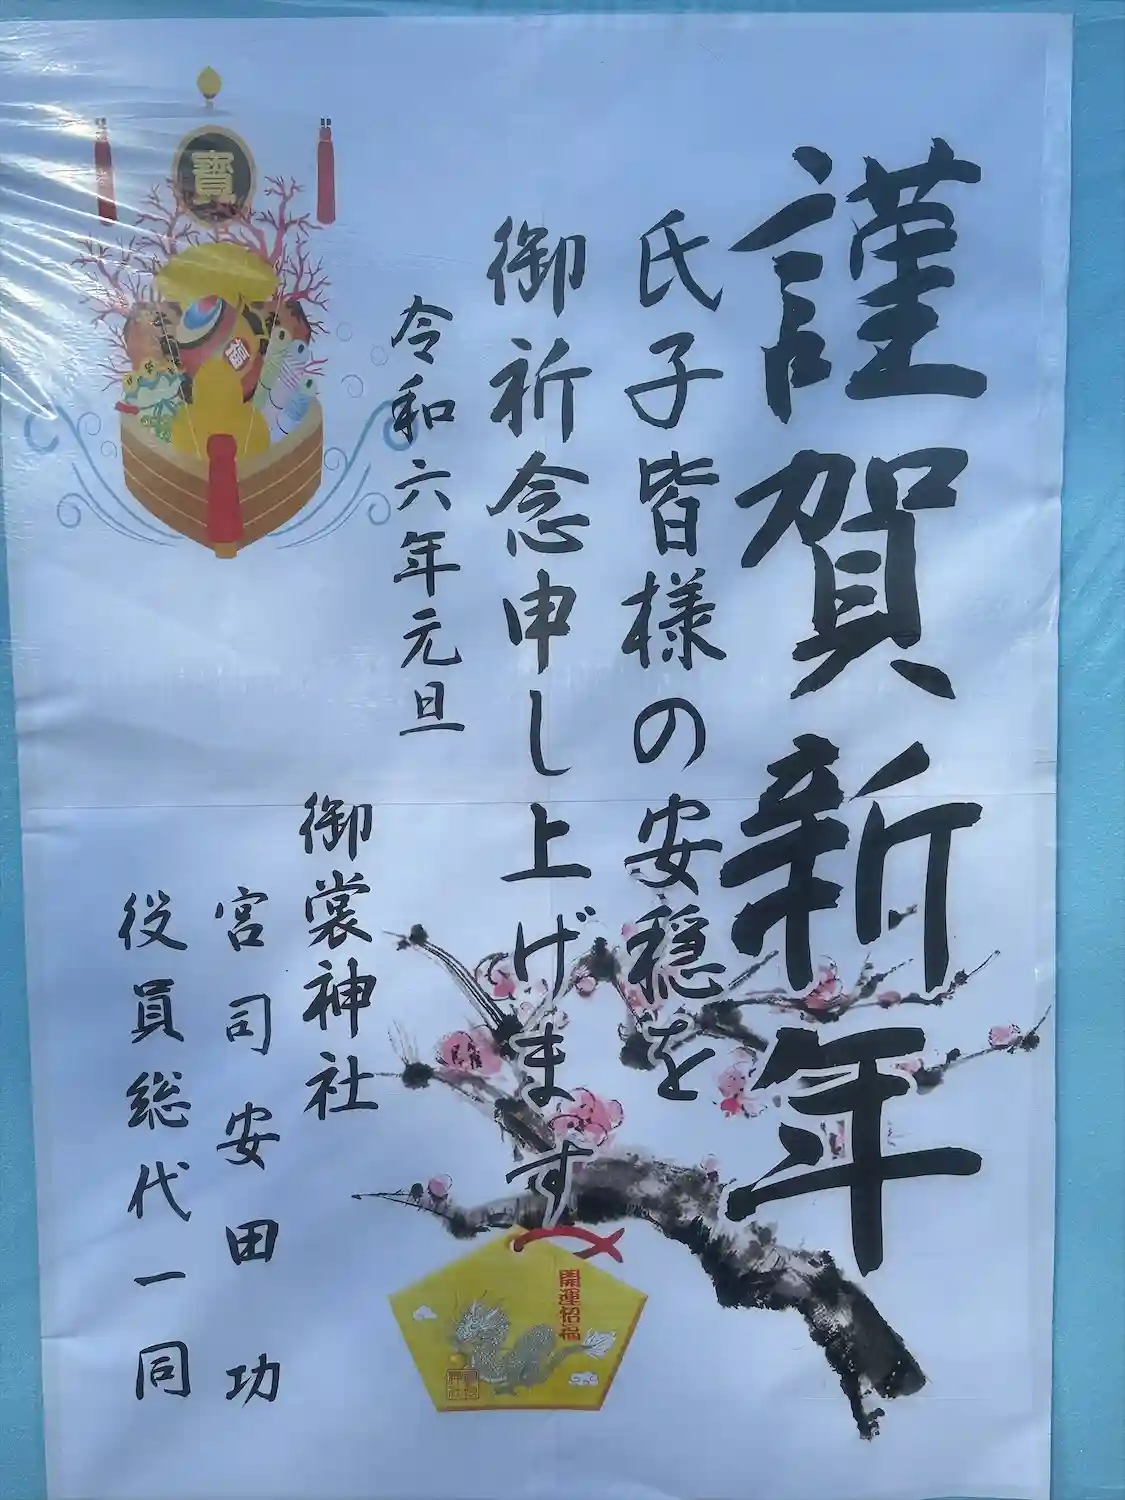 謹賀新年
氏子皆様の安穏を
御祈念申し上げます
令和六年元旦
御裳神社
宮司 安田 功
役員総代一同
寳
福
開運招福